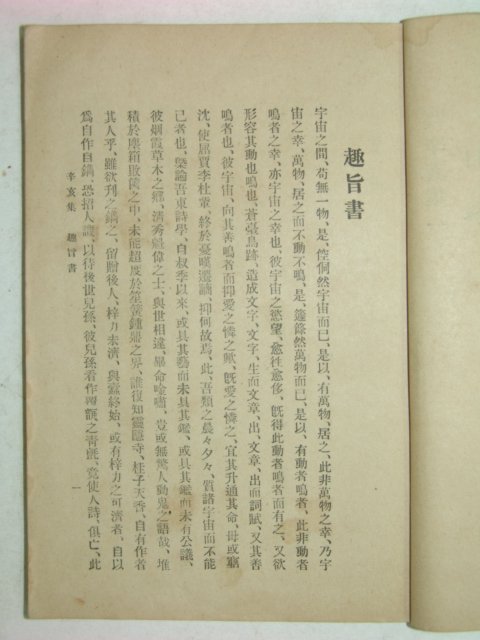 趣旨書
宇宙之間、苟無一物、是、倥侗然宇宙而已、是以、有萬物、居之、此非萬物之幸、乃宇
宙之幸、萬物、居之而不動不鳴、是、籧篨然萬物而已、是以、有動者鳴者、此非動者
鳴者之幸、亦宇宙之幸也彼宇宙之慾望、愈徃愈侈、旣得此動者鳴者而有之、又欲
形容其動也鳴也、蒼臺鳥跡、造成文字、文字、生而文章、出、文章、出而詞賦、又其善
鳴者也、彼宇宙、向其善鳴者而抑愛之憐之歟、旣愛之憐之、宜其升通其命、毋或窮
沈、使屈賈李杜輩、終於憂嘆𨓏謫、抑何故焉、此、吾類之晨々夕々、質諸宇宙而不能
已者也、槩論吾東詩學、自叔季以來、或具其藝而未具其鑑、或具其鑑而未有公議、
彼烟霞草木之鄕、淸秀魁偉之士、與世相違、畢命唫嘯、豈或無驚人動鬼之語哉、堆
積於塵箱敗篋之中、未能超度於笙簧鍾鼎之界、誰復知靈隱寺、桂子天香、自有作者
其人乎、雖欲刋之鐫之、留贈後人、梓力未濟、與蠹終始、或有梓力之可濟者、自以
爲自作自鐫、恐招人譏、以待後世兒孫、彼兒孫看作覆瓿之靑氈、竟使人詩、俱亡、此
辛亥集　趣旨書
一